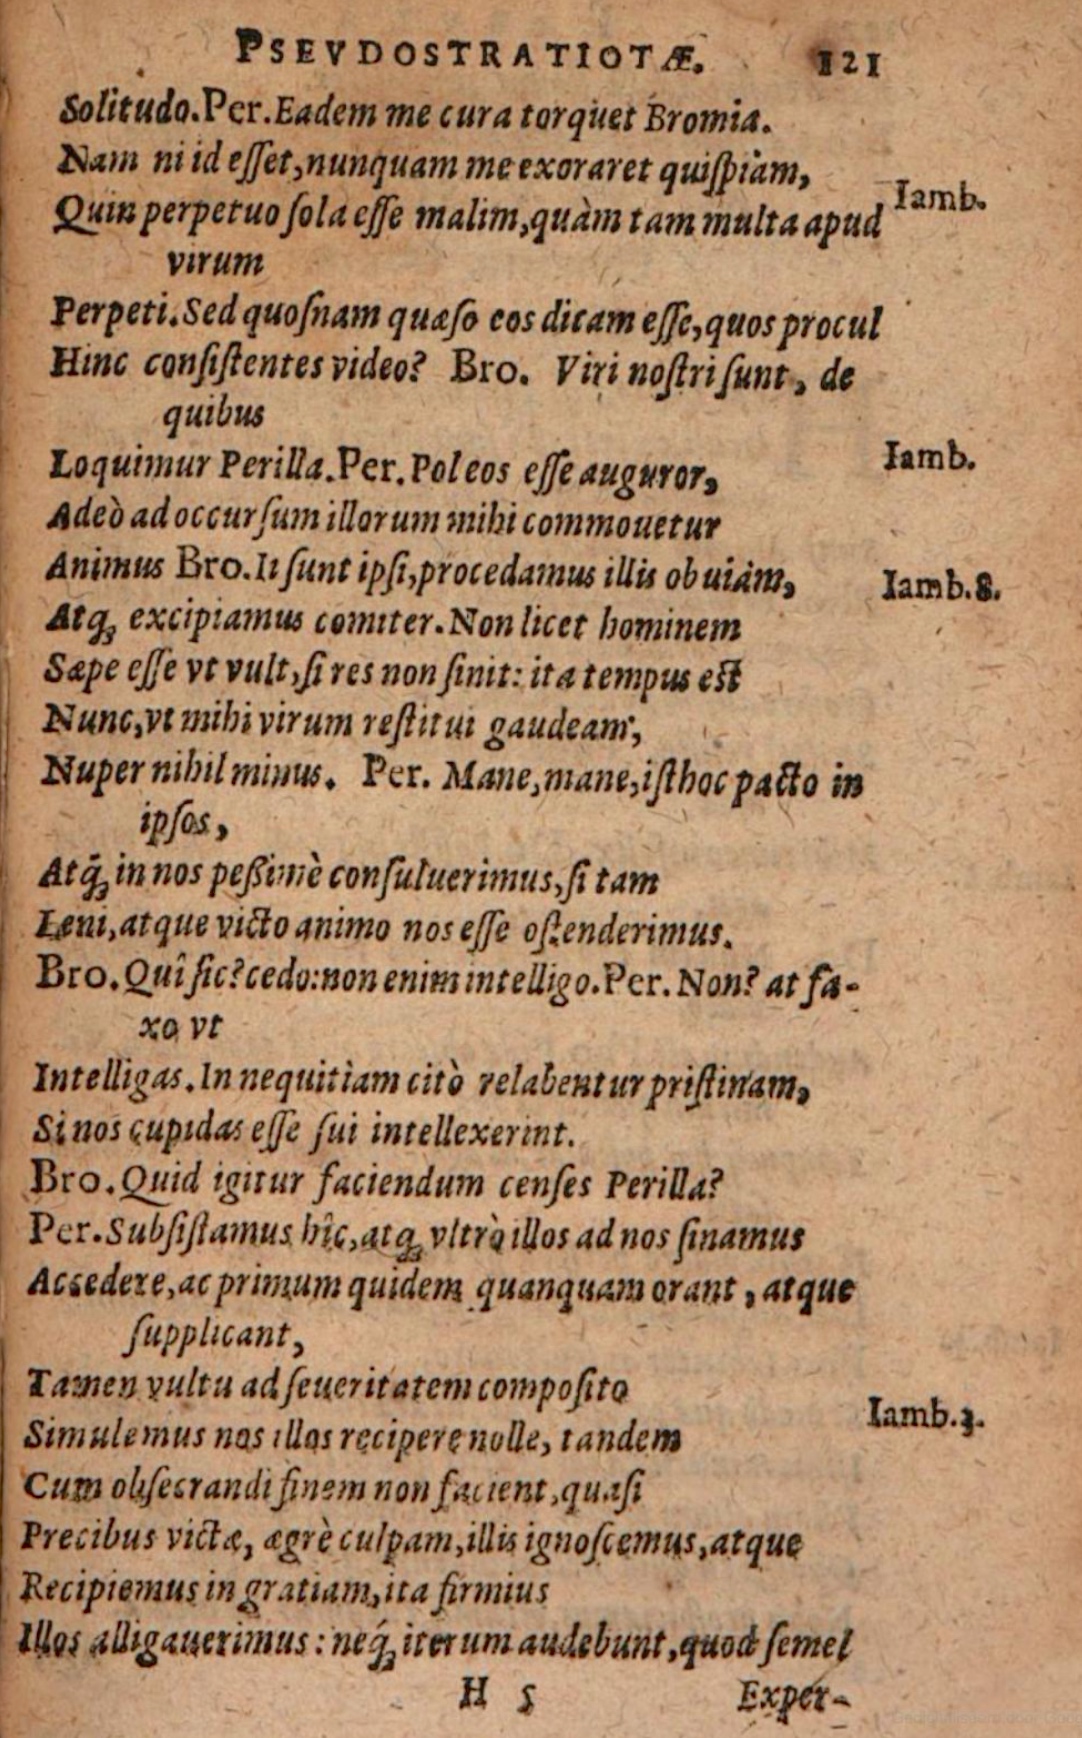 PSEVDOSTRATIOTÆ. 121
Solitudo. Per. Eadem me cura torquet Bromia.
Nam ni id eſſet, nunquam me exoraret quiſpiam,
Iamb.
Quin perpetuo ſola eſſe malim, quàm tam multa apud
virum
Perpeti. Sed quoſnam quæſo eos dicam eſſe, quos procul
Hinc conſiſtentes video? Bro. Viri noſtri ſunt, de
quibus
Loquimur Perilla. Per. Pol eos eſſe auguror,
Iamb.
Adeò ad occurſum illorum mihi commouetur
Animus Bro. Ii ſunt ipſi, procedamus illis obuiàm,
Iamb. 8.
Atq; excipiamus comiter. Non licet hominem
Sæpe eſſe vt vult, ſi res non ſinit: ita tempus eſt
Nunc, vt mihi virum reſtitui gaudeam,
Nuper nihil minus. Per. Mane, mane, iſthoc pacto in
ipſos,
Atq́; in nos peßimè conſuluerimus, ſi tam
Leni, atque victo animo nos eſſe oſtenderimus.
Bro. Quî ſic? cedo: non enim intelligo. Per. Non? at fa-
xo vt
Intelligas. In nequitiam citò relabentur priſtinam,
Si nos cupidas eſſe ſui intellexerint.
Bro. Quid igitur faciendum cenſes Perilla?
Per. Subſiſtamus hîc, atq; vltrò illos ad nos ſinamus
Accedere, ac primum quidem quanquam orant, atque
ſupplicant,
Tamen vultu ad ſeueritatem compoſito
Iamb. 3.
Simulemus nos illos recipere nolle, tandem
Cum obſecrandi finem non facient, quaſi
Precibus victæ, ægrè culpam, illis ignoſcemus, atque
Recipiemus in gratiam, ita firmius
Illos alligauerimus: neq́; iterum audebunt, quod ſemel
H 5 Exper-